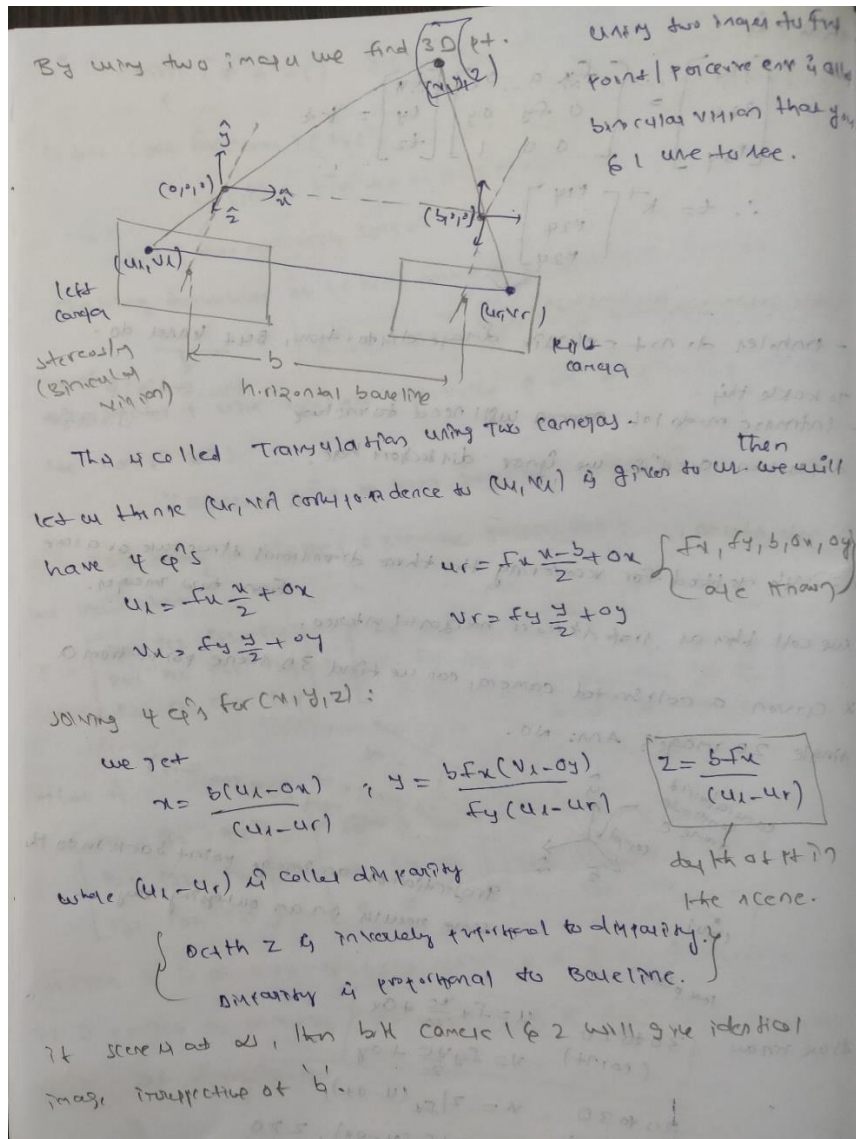 By using two images we find (3D) pt.
(x, y, z)
using two images to find
point / perceive env is called
binocular vision that you
& I use to see.
ŷ
(0,0,0)
x̂
ẑ
(b,0,0)
(ul, vl)
(ur, vr)
left
camera
right
camera
stereosly
(Binocular
vision)
b
horizontal baseline
This is called Triangulation using Two cameras.
let us think (ur, vr) correspondence to (ul, vl) is given to us. then we will
have 4 eqⁿs
ul = fx x/z + ox
ur = fx x-b/z + ox
{ fx, fy, b, ox, oy
are known }
vl = fy y/z + oy
vr = fy y/z + oy
solving 4 eqⁿs for (x, y, z) :
we get
x = b(ul-ox)/(ul-ur) ; y = bfx(vl-oy)/fy(ul-ur)
z = bfx/(ul-ur)
depth of pt in
the scene.
where (ul-ur) is called disparity
{ Depth z is inversely proportional to disparity. }
Disparity is proportional to Baseline.
if scene is at ∞, then both camera 1 & 2 will give identical
image irrespective of 'b'.